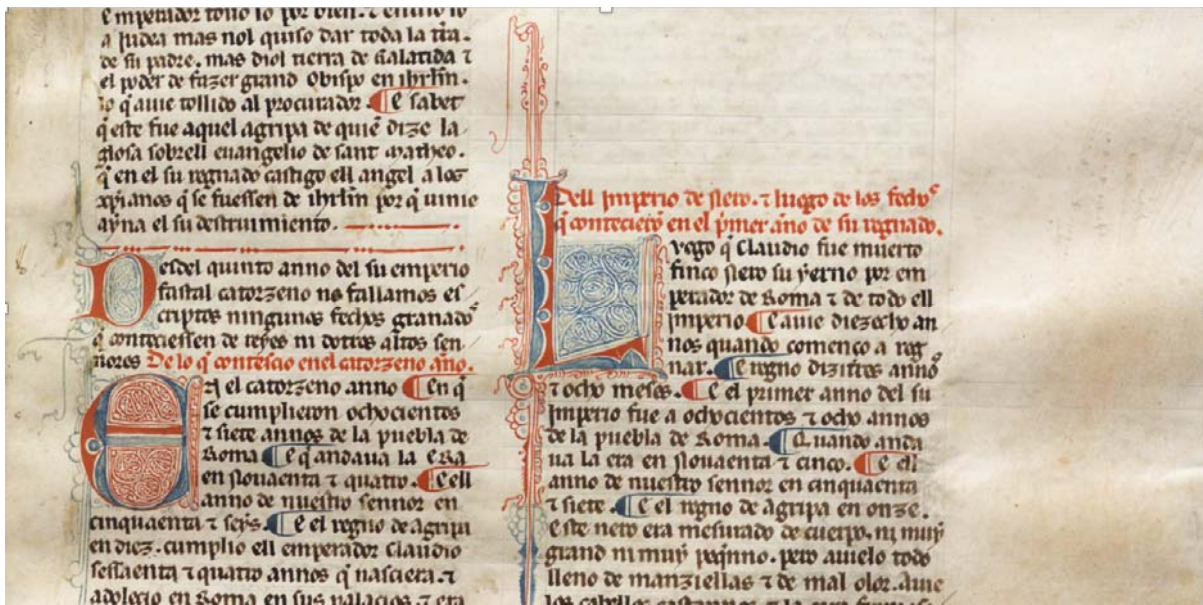 emperador touo lo por bien. ⁊ enuio lo
a Judea mas nol quiso dar toda la tr̃a.
de su padre. mas diol tierra de Galatida ⁊
el poder de fazer grand Obispo en ihrl̃m.
lo q̃ auie tollido al procurador. ¶ E sabet
q̃ este fue aquel agripa de quiẽ dize la
glosa sobrell euangelio de sant Matheo.
q̃ en el su regnado castigo ell angel a los
xp̃ianos q̃ se fuessen de ihrl̃m por q̃ uinie
ayna el su destruimiento.
Desdel quinto anno del su emperio
fastal catorzeno no fallamos es
criptos ningunos fechos granados
q̃ conteciessen de reyes ni dotros altos sen
nores De lo q̃ contescio enel catorzeno año.
En el catorzeno anno ¶ En q̃
se cumplieron ochocientos
⁊ siete annos de la puebla de
Roma ¶ E q̃ andaua la Era
en Nouaenta ⁊ quatro. ¶ E ell
anno de nuestro sennor en
cinquaenta ⁊ seys. ¶ E el regno de agripa
en diez. cumplio ell emperador Claudio
sessaenta ⁊ quatro annos q̃ nasciera. ⁊
adolecio en Roma en sus palacios. ⁊ era
Dell Imperio de Nero. ⁊ luego de los fechos
q̃ contecierõ en el p̃mer año de su regnado.
Luego q̃ Claudio fue muerto
finco Nero su yerno por em
perador de Roma ⁊ de todo ell
Imperio ¶ E auie diezocho an
nos quando començo a reg
nar. ¶ E regno dizitres annos
⁊ ocho meses. ¶ E el primer anno del su
Imperio fue a ochocientos ⁊ ocho annos
de la puebla de Roma. ¶ Quando anda
ua la era en Nouaenta ⁊ cinco. ¶ E ell
anno de nuestro sennor en cinquaenta
⁊ siete. ¶ E el regno de agripa en onze.
Este nero era mesurado de cuerpo. ni muy
grand ni muy peq̃nno. pero auielo todo
lleno de manziellas ⁊ de mal olor. Auie
los cabellos castannos. ⁊ la